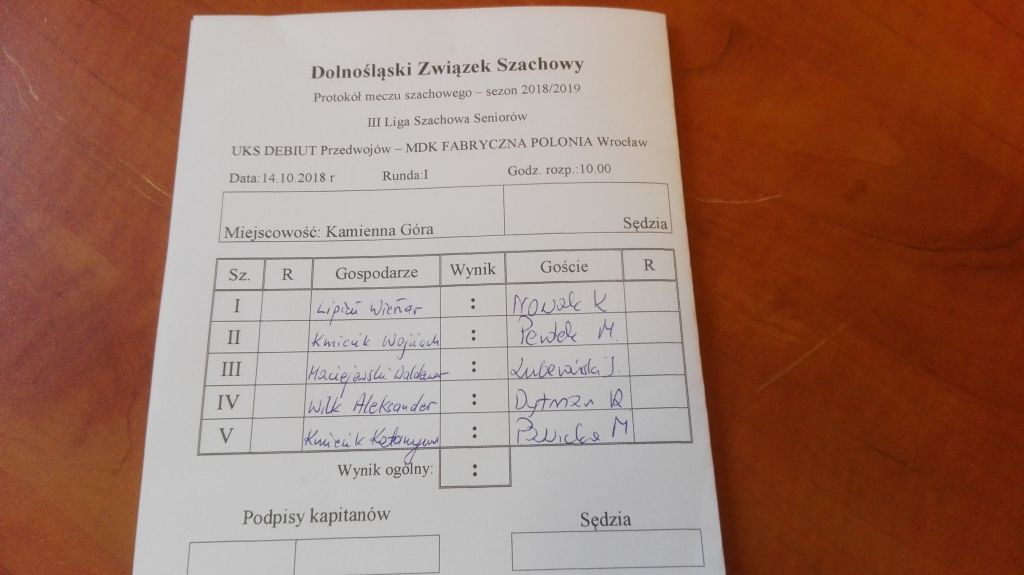 Dolnośląski Związek Szachowy
Protokół meczu szachowego – sezon 2018/2019
III Liga Szachowa Seniorów
UKS DEBIUT Przedwojów – MDK FABRYCZNA POLONIA Wrocław
Data:14.10.2018 r Runda:I Godz. rozp.:10.00
Miejscowość: Kamienna Góra Sędzia
Sz. R Gospodarze Wynik Goście R
I : Nowak K
II Kmiecik Wojciech : M.
III Maciejowski Waldemar : J.
IV Wilk Aleksander : Dytman R
V Kmiecik Katarzyna : M
Wynik ogólny: :
Podpisy kapitanów Sędzia